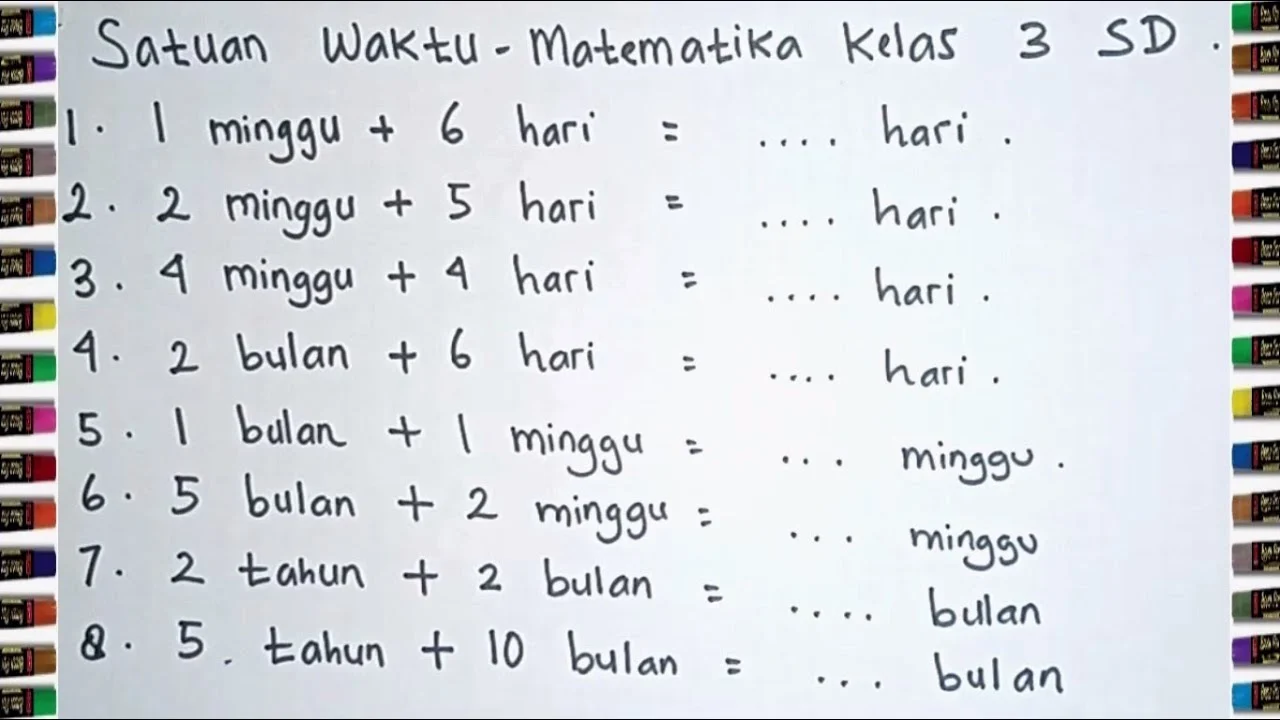 Satuan Waktu - Matematika Kelas 3 SD.
1. 1 minggu + 6 hari = .... hari.
2. 2 minggu + 5 hari = .... hari.
3. 4 minggu + 4 hari = .... hari.
4. 2 bulan + 6 hari = .... hari.
5. 1 bulan + 1 minggu = ... minggu.
6. 5 bulan + 2 minggu = ... minggu
7. 2 tahun + 2 bulan = .... bulan
8. 5. tahun + 10 bulan = ... bulan